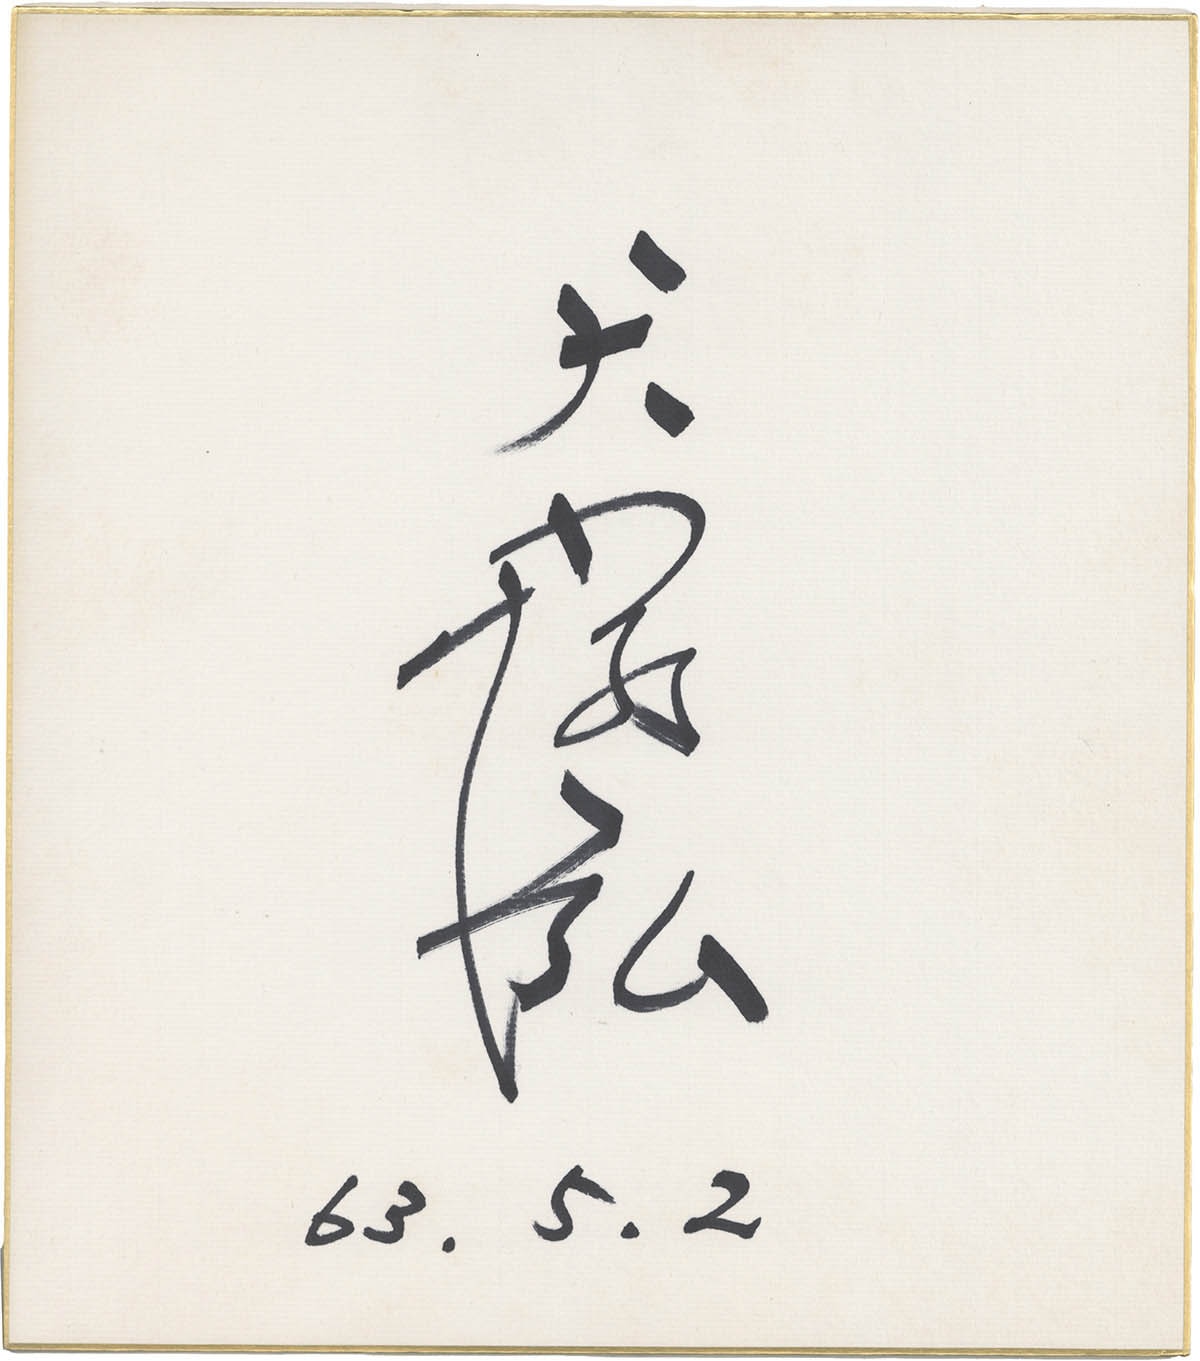 犬塚弘
63.5.2